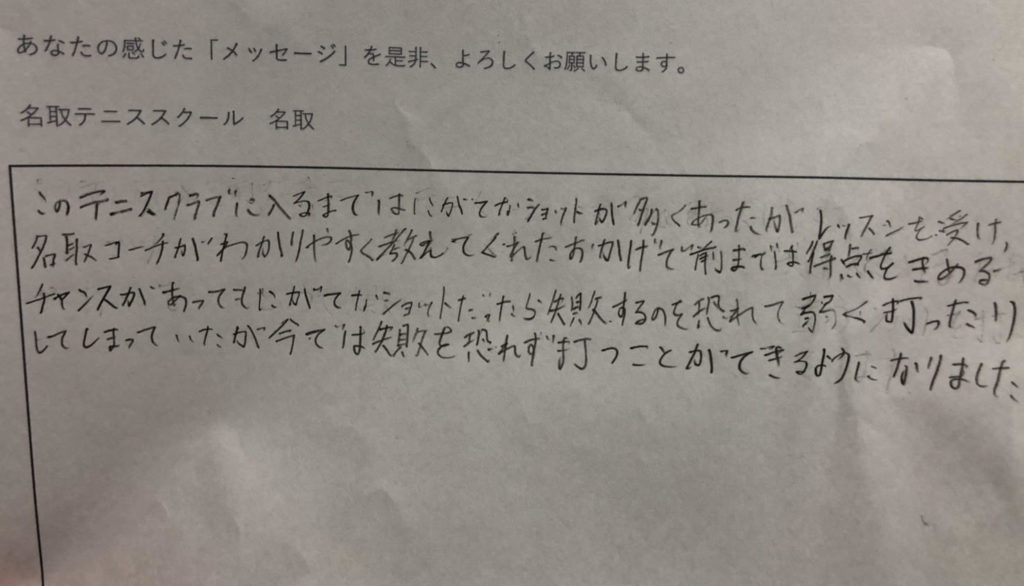 あなたの感じた「メッセージ」を是非、よろしくお願いします。
名取テニススクール　名取
このテニスクラブに入るまではにがてなショットが多くあったがレッスンを受け,
名取コーチがわかりやすく教えてくれたおかげで前までは得点をきめる
チャンスがあってもにがてなショットだったら失敗するのを恐れて弱く打ったり
してしまっていたが今では失敗を恐れず打つことができるようになりました